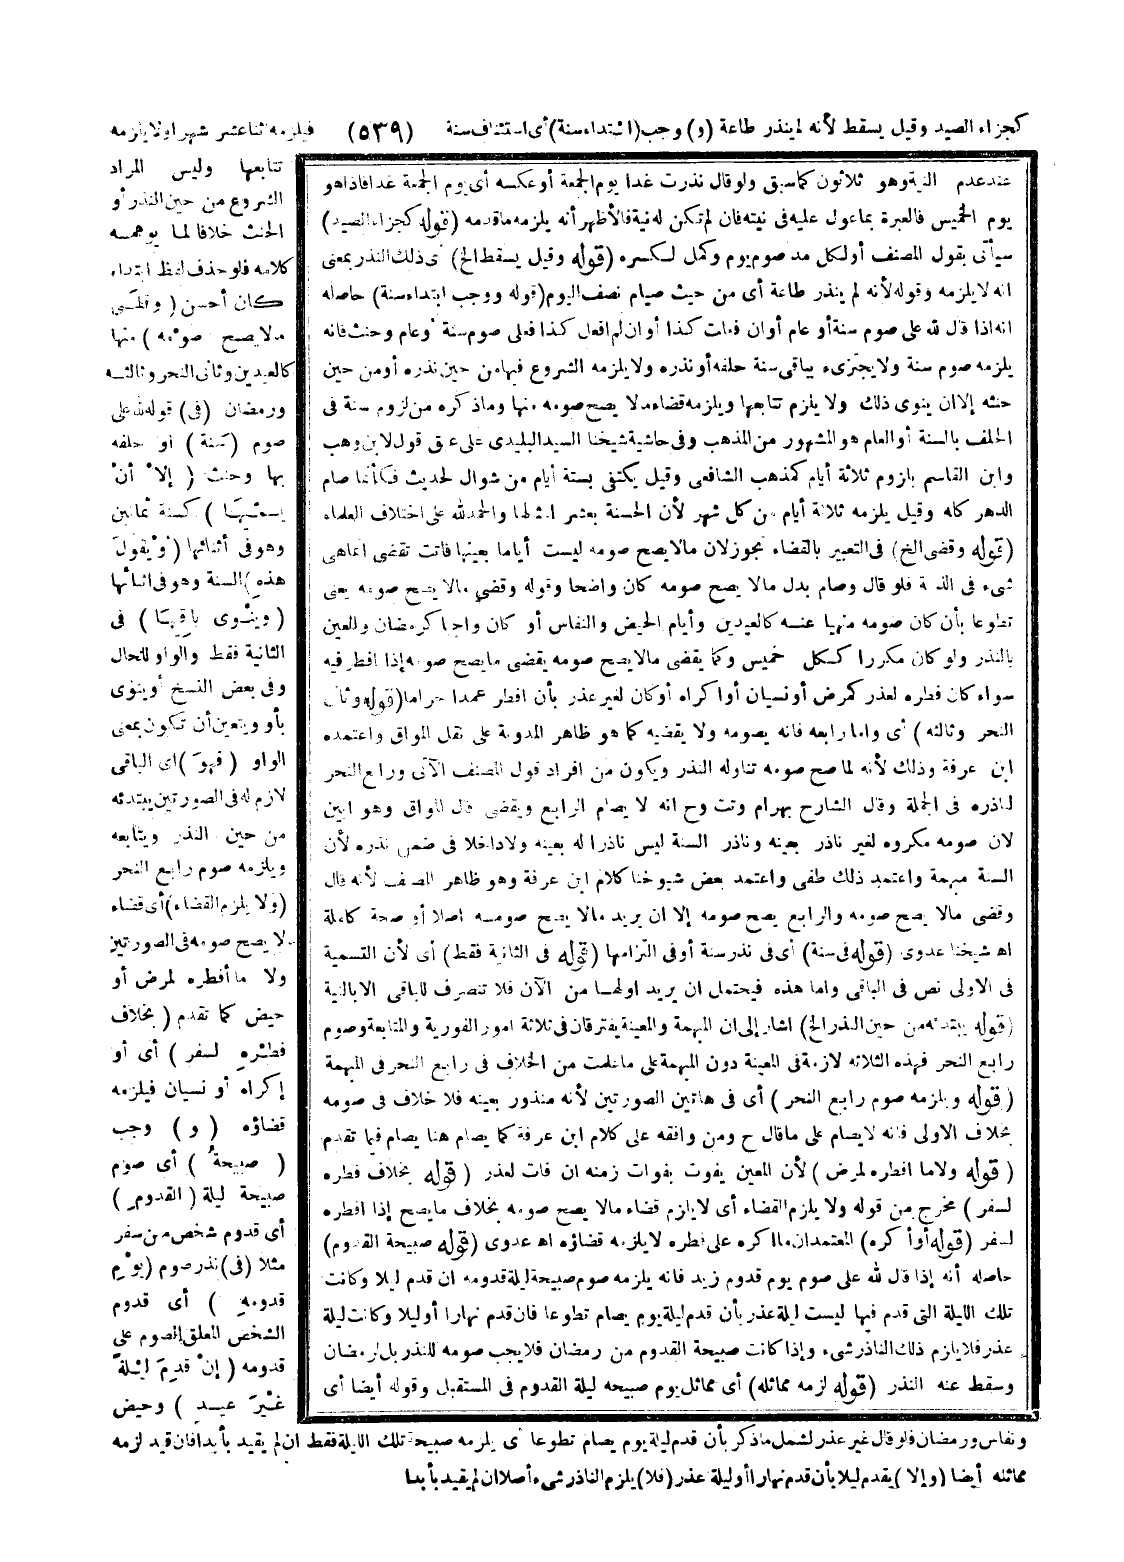 كجزاء الصيد وقيل يسقط لأنه لم ينذر طاعة (و) وجب (ابتداء سنة) أى استئناف سنة (٥٣٩) فيلزمه اثنا عشر شهرا ولا يلزمه
تتابعها وليس المراد
الشروع من حين النذر أو
الحنث خلافا لما يوهمه
كلامه فلو حذف لفظ ابتداء
كان أحسن (وقضى
مالا يصح صومه) منها
كالعيدين وثانى النحر وثالثه
ورمضان (فى) قوله لله على
صوم (سنة) أو حلفه
بها وحنث (إلا أن
يسميها) كسنة ثمانين
وهو فى أثنائها (أو يقول
هذه) السنة وهو فى اثنائها
(وينوى باقيها) فى
الثانية فقط والواو للحال
وفى بعض النسخ أو ينوى
بأو ويتعين أن تكون بمعنى
الواو (فهو) اى الباقى
لازم له فى الصورتين يبتدئه
من حين النذر ويتابعه
ويلزمه صوم رابع النحر
(ولا يلزم القضاء) أى قضاء
مالا يصح صومه فى الصورتين
ولا ما أفطره لمرض أو
حيض كما تقدم (بخلاف
فطره لسفر) أى أو
إكراه أو نسيان فيلزمه
قضاؤه (و) وجب
(صبيحة) أى صوم
صبيحة ليلة (القدوم)
أى قدوم شخص من سفر
مثلا (فى) نذر صوم (يوم
قدومه) أى قدوم
الشخص المعلق الصوم على
قدومه (إن قدم ليلة
غير عيد) وحيض
ونفاس ورمضان فلو قال غير عذر لشمل ما ذكر بأن قدم ليلة يوم يصام تطوعا أى يلزمه صبيحة تلك الليلة فقط ان لم يقيد بأبدا فان قيد لزمه
مماثله أيضا (وإلا) يقدم ليلا بأن قدم نهارا أو ليلة عذر (فلا) يلزم الناذر شىء أصلا ان لم يقيد بأبدا
عند عدم النية وهو ثلاثون كما سبق ولو قال نذرت غدا يوم الجمعة أو عكسه أى يوم الجمعة غدا فاذا هو
يوم الخميس فالعبرة بما عول عليه فى نيته فان لم تكن له نية فالأظهر أنه يلزمه ما قدمه (قوله كجزاء الصيد)
سيأتى بقول المصنف أو لكل مد صوم يوم وكمل لكسره (قوله وقيل يسقط الخ) أى ذلك النذر بمعنى
انه لا يلزمه وقوله لأنه لم ينذر طاعة أى من حيث صيام نصف اليوم (قوله ووجب ابتداء سنة) حاصله
انه اذا قال لله على صوم سنة أو عام أو ان فعلت كذا أو ان لم افعل كذا فعلى صوم سنة أو عام وحنث فانه
يلزمه صوم سنة ولا يجتزىء بباقى سنة حلفه أو نذره ولا يلزمه الشروع فيها من حين نذره أو من حين
حنثه إلا ان ينوى ذلك ولا يلزم تتابعها ويلزمه قضاء مالا يصح صومه منها وما ذكره من لزوم سنة فى
الحلف بالسنة أو العام هو المشهور من المذهب وفى حاشية شيخنا السيد البليدى على عبق قول لابن وهب
وابن القاسم بلزوم ثلاثة أيام كمذهب الشافعى وقيل يكتفى بستة أيام من شوال لحديث فكأنما صام
الدهر كله وقيل يلزمه ثلاثة أيام من كل شهر لأن الحسنة بعشر امثالها والحمد لله على اختلاف العلماء
(قوله وقضى الخ) فى التعبير بالقضاء تجوز لان مالا يصح صومه ليست أياما بعينها فاتت تقضى انما هى
شىء فى الذمة فلو قال وصام بدل مالا يصح صومه كان واضحا وقوله وقضى مالا يصح صومه يعنى
تطوعا بأن كان صومه منهيا عنه كالعيدين وأيام الحيض والنفاس أو كان واجبا كرمضان والمعين
بالنذر ولو كان مكررا ككل خميس وكما يقضى مالا يصح صومه يقضى ما يصح صومه إذا افطر فيه
سواء كان فطره لعذر كمرض أو نسيان أو اكراه أو كان لغير عذر بأن افطر عمدا حراما (قوله وثانى
النحر وثالثه) أى واما رابعه فانه يصومه ولا يقضيه كما هو ظاهر المدونة على نقل المواق واعتمده
ابن عرفة وذلك لأنه لما صح صومه تناوله النذر ويكون من افراد قول المصنف الآتى ورابع النحر
لناذره فى الجملة وقال الشارح بهرام وتت وح انه لا يصام الرابع ويقضى قال المواق وهو ابين
لان صومه مكروه لغير ناذر بعينه وناذر السنة ليس ناذرا له بعينه ولا داخلا فى ضمن نذره لأن
السنة مبهمة واعتمد ذلك طفى واعتمد بعض شيوخنا كلام ابن عرفة وهو ظاهر المصنف لأنه قال
وقضى مالا يصح صومه والرابع يصح صومه إلا ان يريد مالا يصح صومه اصلا أو صحة كاملة
اه شيخنا عدوى (قوله فى سنة) أى فى نذر سنة أو فى التزامها (قوله فى الثانية فقط) أى لأن التسمية
فى الاولى نص فى الباقى واما هذه فيحتمل ان يريد اولها من الآن فلا تنصرف للباقى الا بالنية
(قوله يبتدئه من حين النذر الخ) اشار إلى ان المبهمة والمعينة يفترقان فى ثلاثة امور الفورية والمتابعة وصوم
رابع النحر فهذه الثلاثه لازمة فى المعينة دون المبهمة على ما علمت من الخلاف فى رابع النحر فى المبهمة
(قوله ويلزمه صوم رابع النحر) أى فى هاتين الصورتين لأنه منذور بعينه فلا خلاف فى صومه
بخلاف الاولى فانه لا يصام على ما قال ح ومن وافقه على كلام ابن عرفة كما يصام هنا يصام فيما تقدم
(قوله ولا ما افطره لمرض) لأن المعين يفوت بفوات زمنه ان فات لعذر (قوله بخلاف فطره
لسفر) مخرج من قوله ولا يلزم القضاء أى لا يلزم قضاء مالا يصح صومه بخلاف ما يصح إذا افطره
لسفر (قوله أو أكره) المعتمد ان ما اكره على فطره لا يلزمه قضاؤه اه عدوى (قوله صبيحة القدوم)
حاصله أنه إذا قال لله على صوم يوم قدوم زيد فانه يلزمه صوم صبيحة ليلة قدومه ان قدم ليلا وكانت
تلك الليلة التى قدم فيها ليست ليلة عذر بأن قدم ليلة يوم يصام تطوعا فان قدم نهارا أو ليلا وكانت ليلة
عذر فلا يلزم ذلك الناذر شىء وإذا كانت صبيحة القدوم من رمضان فلا يجب صومه للنذر بل لرمضان
وسقط عنه النذر (قوله لزمه مماثله) أى مماثل يوم صبيحه ليلة القدوم فى المستقبل وقوله أيضا أى